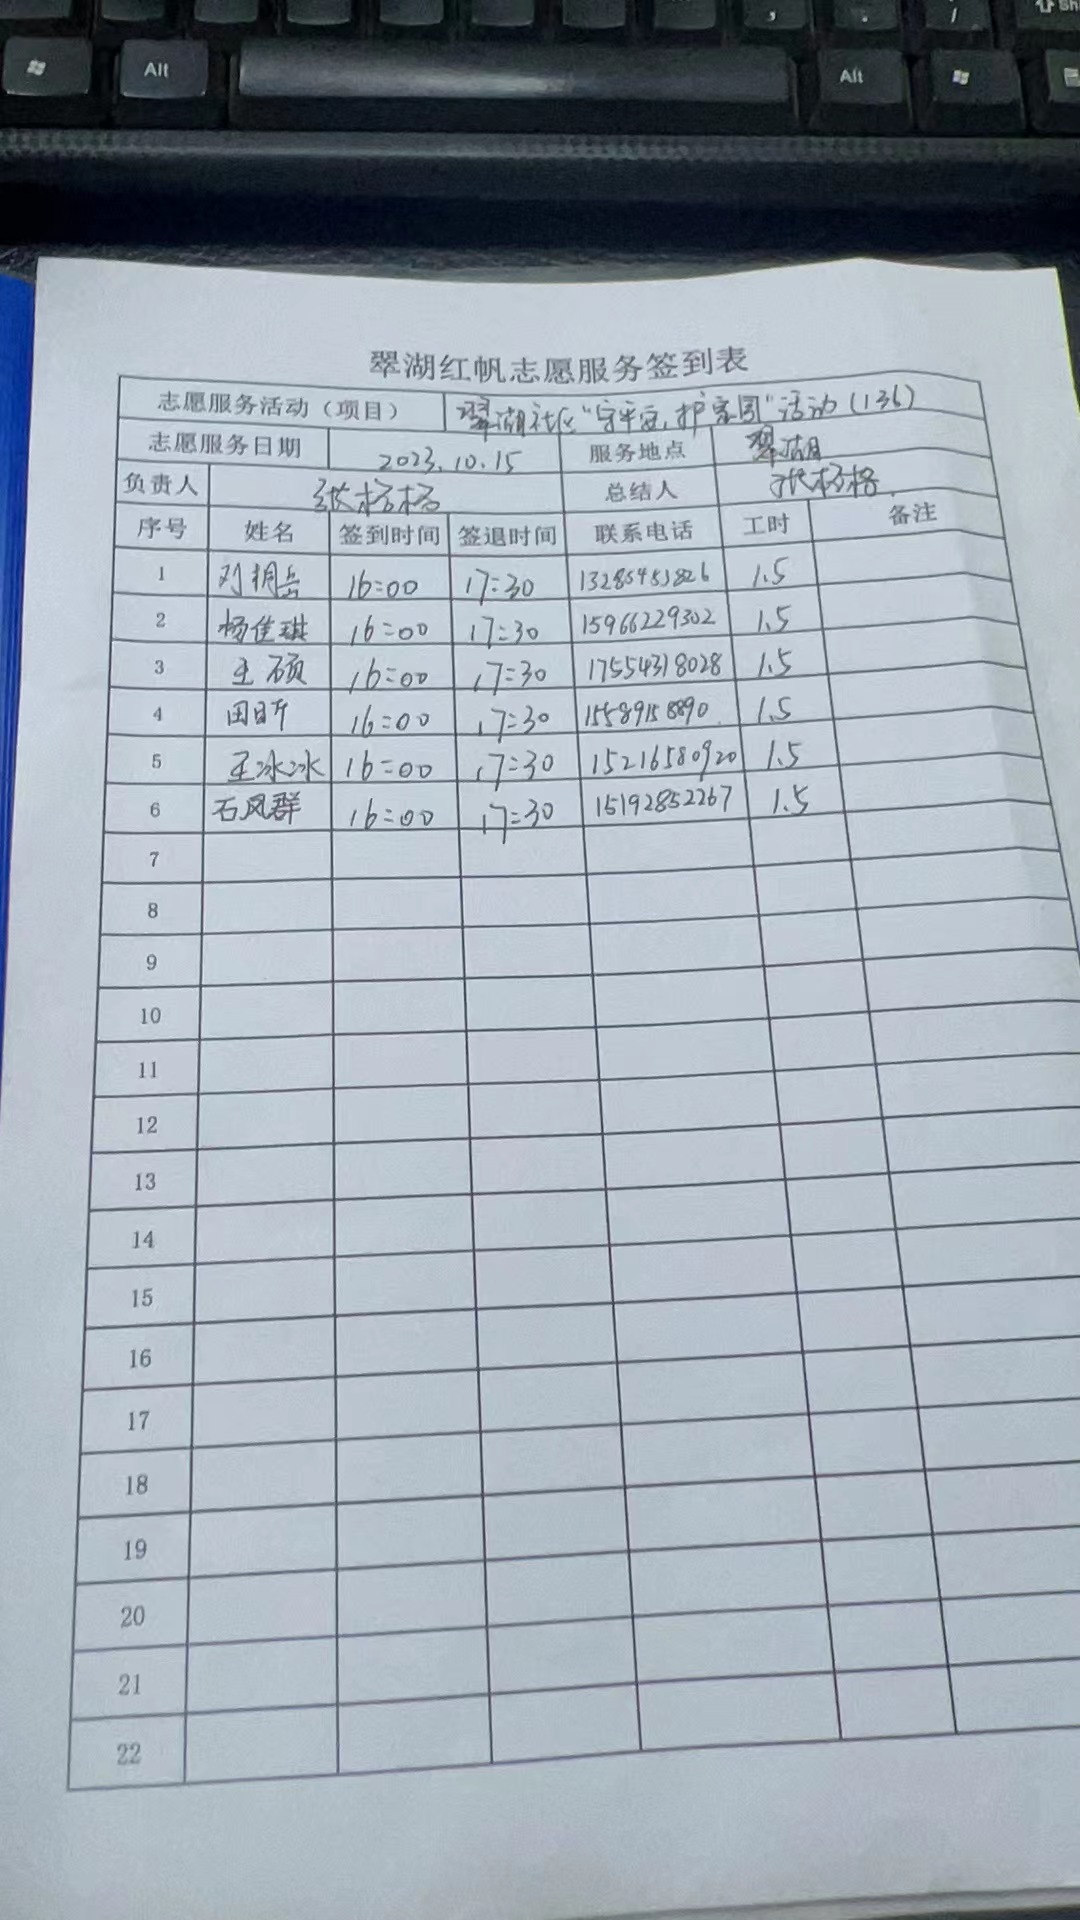 Alt Alt
翠湖红帆志愿服务签到表
志愿服务活动（项目） 翠湖社区“守平安,护家园”活动(136)
志愿服务日期 2023.10.15 服务地点 翠湖
负责人 张杨格 总结人 张杨格
序号 姓名 签到时间 签退时间 联系电话 工时 备注
1 16:00 17:30 13285453826 1.5
2 杨佳琪 16:00 17:30 15966229302 1.5
3 王硕 16:00 17:30 17554318028 1.5
4 田昕 16:00 17:30 15589158890 1.5
5 王冰冰 16:00 17:30 15216580920 1.5
6 石凤群 16:00 17:30 15192852267 1.5
7
8
9
10
11
12
13
14
15
16
17
18
19
20
21
22